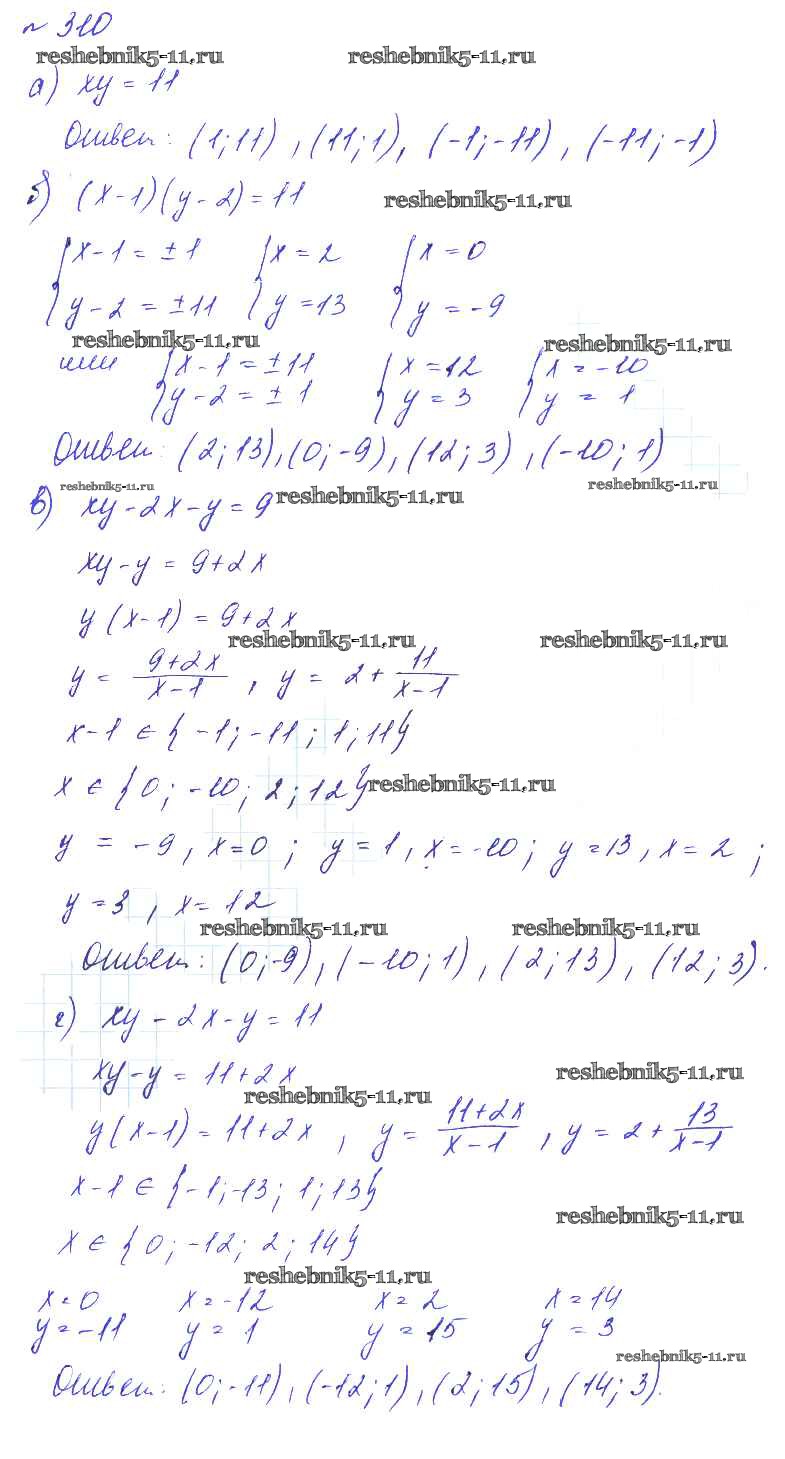 № 310
reshebnik5-11.ru reshebnik5-11.ru
а) xy = 11
Ответ: (1; 11), (11; 1), (-1; -11), (-11; -1)
б) (x-1)(y-2) = 11 reshebnik5-11.ru
{x-1 = ±1 {x = 2 {x = 0
{y-2 = ±11 {y = 13 {y = -9
reshebnik5-11.ru reshebnik5-11.ru
или {x-1 = ±11 {x = 12 {x = -10
{y-2 = ±1 {y = 3 {y = 1
Ответ: (2; 13), (0; -9), (12; 3), (-10; 1)
reshebnik5-11.ru reshebnik5-11.ru reshebnik5-11.ru
в) xy - 2x - y = 9
xy - y = 9 + 2x
y(x-1) = 9 + 2x
reshebnik5-11.ru reshebnik5-11.ru
y = (9+2x)/(x-1), y = 2 + 11/(x-1)
x-1 ∈ {-1; -11; 1; 11}
x ∈ {0; -10; 2; 12} reshebnik5-11.ru
y = -9, x = 0; y = 1, x = -10; y = 13, x = 2;
y = 3, x = 12
reshebnik5-11.ru reshebnik5-11.ru
Ответ: (0; -9), (-10; 1), (2; 13), (12; 3).
г) xy - 2x - y = 11
xy - y = 11 + 2x reshebnik5-11.ru
reshebnik5-11.ru
y(x-1) = 11 + 2x, y = (11+2x)/(x-1), y = 2 + 13/(x-1)
x-1 ∈ {-1; -13; 1; 13}
reshebnik5-11.ru
x ∈ {0; -12; 2; 14}
reshebnik5-11.ru
x = 0 x = -12 x = 2 x = 14
y = -11 y = 1 y = 15 y = 3
reshebnik5-11.ru
Ответ: (0; -11), (-12; 1), (2; 15), (14; 3).